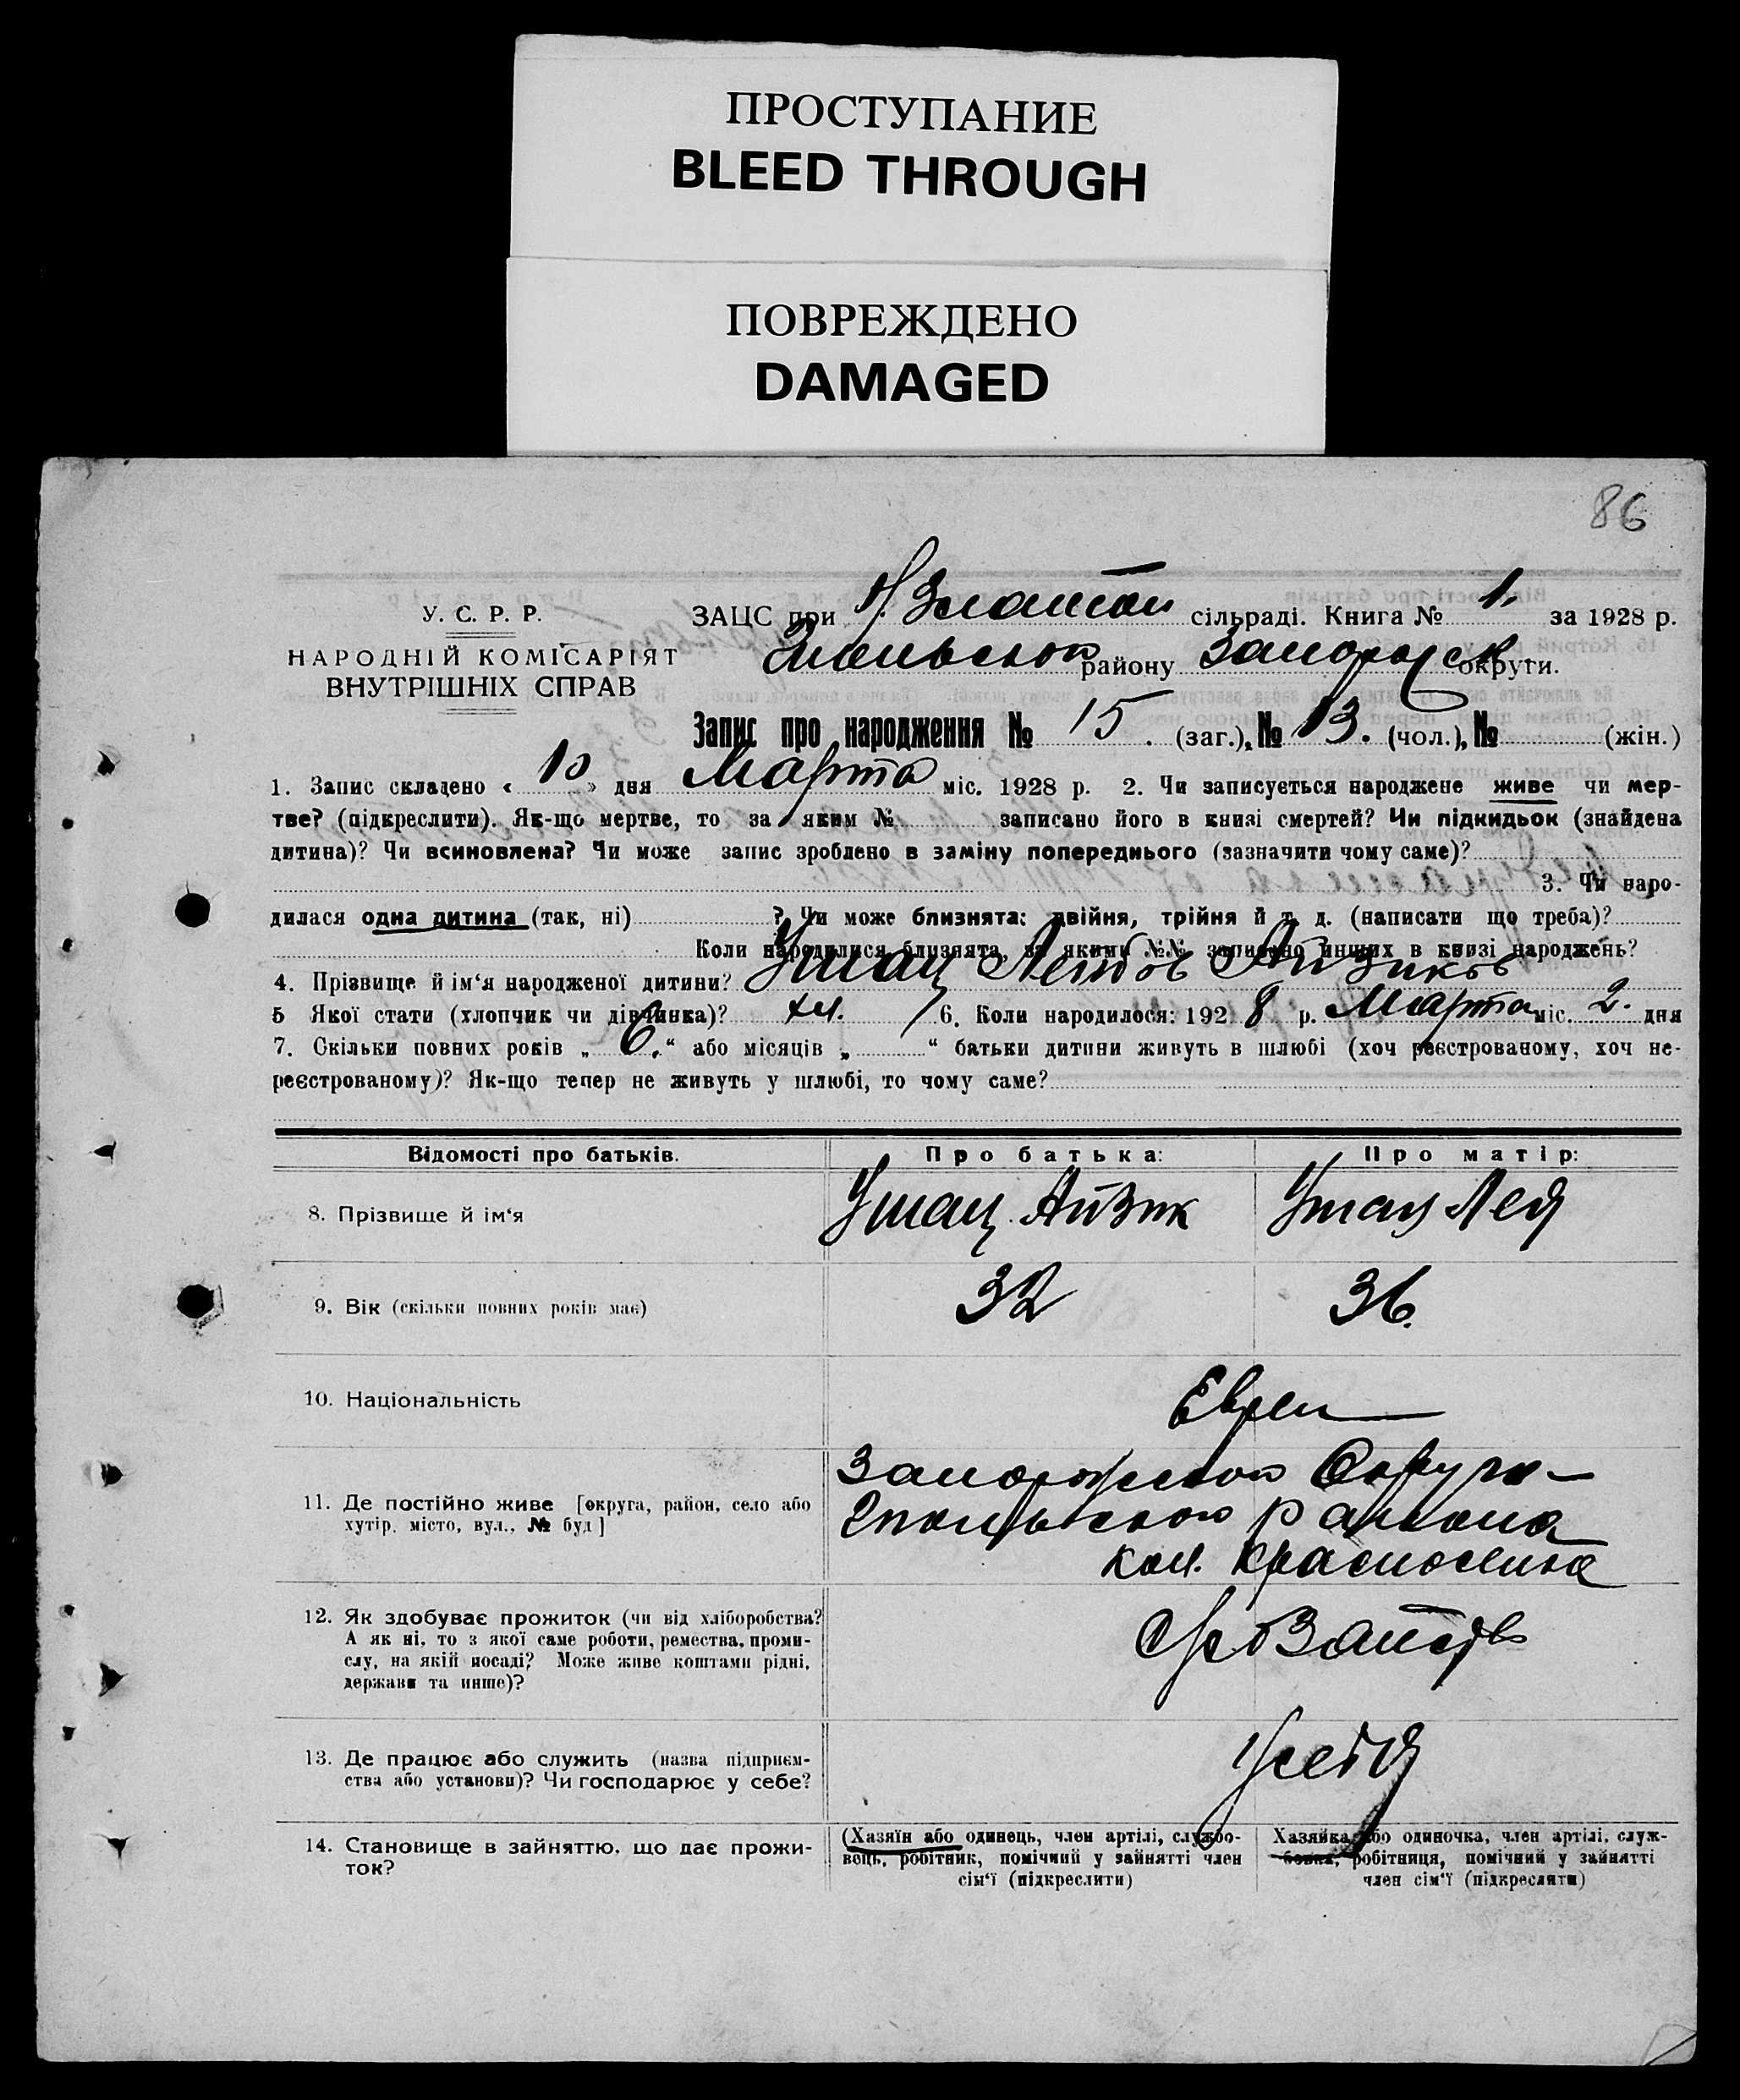 ПРОСТУПАНИЕ
BLEED THROUGH
ПОВРЕЖДЕНО
DAMAGED
86
У. С. Р. Р.
НАРОДНІЙ КОМІСАРІЯТ
ВНУТРІШНІХ СПРАВ
ЗАЦС при сільраді. Книга № 1. за 1928 р.
району округи.
Запис про народження № 15. (заг.), № 13. (чол.), № (жін.)
1. Запис складено « 10 » дня Марта міс. 1928 р. 2. Чи записується народжене живе чи мер-
тве? (підкреслити). Як-що мертве, то за яким № записано його в книзі смертей? Чи підкидьок (знайдена
дитина)? Чи всиновлена? Чи може запис зроблено в заміну попереднього (зазначити чому саме)?
3. Чи наро-
дилася одна дитина (так, ні) ? Чи може близнята: двійня, трійня й т. д. (написати що треба)?
Коли народилися близнята, за якими №№ записано инших в книзі народжень?
4. Прізвище й ім‘я народженої дитини? Ушац Лейбов Айзиков
5 Якої стати (хлопчик чи дівчинка)? хл. 6. Коли народилося: 1928 р. Марта міс. 2. дня
7. Скільки повних років „ 6. “ або місяців „ “ батьки дитини живуть в шлюбі (хоч реєстрованому, хоч не-
реєстрованому)? Як-що тепер не живуть у шлюбі, то чому саме?
Відомості про батьків. Про батька: Про матір:
8. Прізвище й ім‘я Ушац Айзик Ушац Лея
9. Вік (скільки повних років має) 32 36.
10. Національність Евреи
11. Де постійно живе [округа, район, село або
хутір, місто, вул., № буд]
Запорожской Округи
района
кол. Красноселка
12. Як здобуває прожиток (чи від хліборобства?
А як ні, то з якої саме роботи, ремества, проми-
слу, на якій посаді? Може живе коштами рідні,
держави та инше)?
13. Де працює або служить (назва підприєм-
ства або установи)? Чи господарює у себе?
у себя
14. Становище в зайняттю, що дає прожи-
ток?
(Хазяїн або одинець, член артілі, службо-
вець, робітник, помічний у зайнятті член
сім‘ї (підкреслити)
Хазяйка або одиночка, член артілі, служ-
бовка, робітниця, помічний у зайнятті
член сім‘ї (підкреслити)